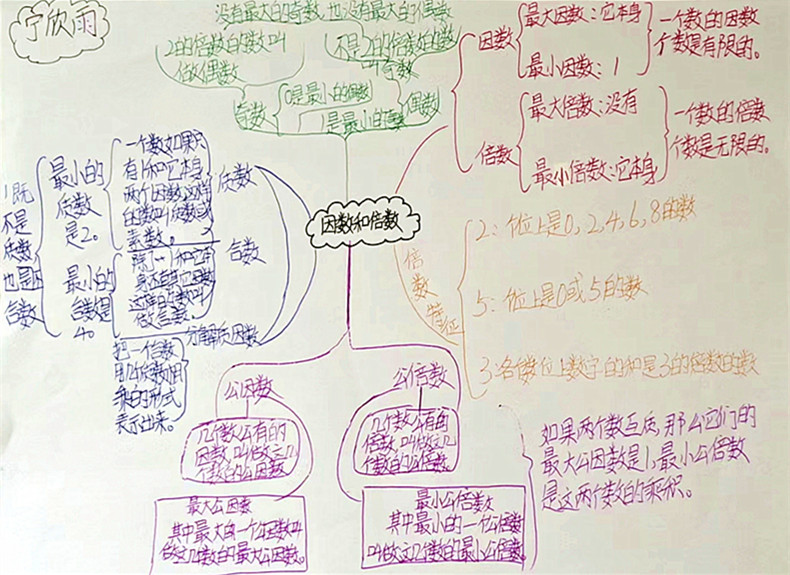 宁欣雨
没有最大的奇数,也没有最大的偶数
2的倍数的数叫
做偶数
不是2的倍数的数
叫奇数
奇数
0是最小的偶数
1是最小的奇数
偶数
因数
最大因数:它本身
最小因数:1
一个数的因数
个数是有限的。
倍数
最大倍数:没有
最小倍数:它本身
一个数的倍数
个数是无限的。
因数和倍数
倍数特征
2:个位上是0,2,4,6,8的数
5:个位上是0或5的数
3:各数位上数字的和是3的倍数的数
质数
一个数如果只
有1和它本身
两个因数,这样
的数叫质数或
素数。
最小的
质数
是2。
合数
除了1和它本
身还有其它因数
这样的数叫
做合数。
最小的
合数是
4。
1既
不是
质数
也是不
合数
分解质因数
把一个合数
用几个质数相
乘的形式
表示出来。
公因数
几个数公有的
因数,叫做这几
个数的公因数
最大公因数
其中最大的一个公因数叫
做这几个数的最大公因数。
公倍数
几个数公有的
倍数,叫做这几
个数的公倍数
最小公倍数
其中最小的一个公倍数
叫做这几个数的最小公倍数。
如果两个数互质,那么它们的
最大公因数是1,最小公倍数
是这两个数的乘积。